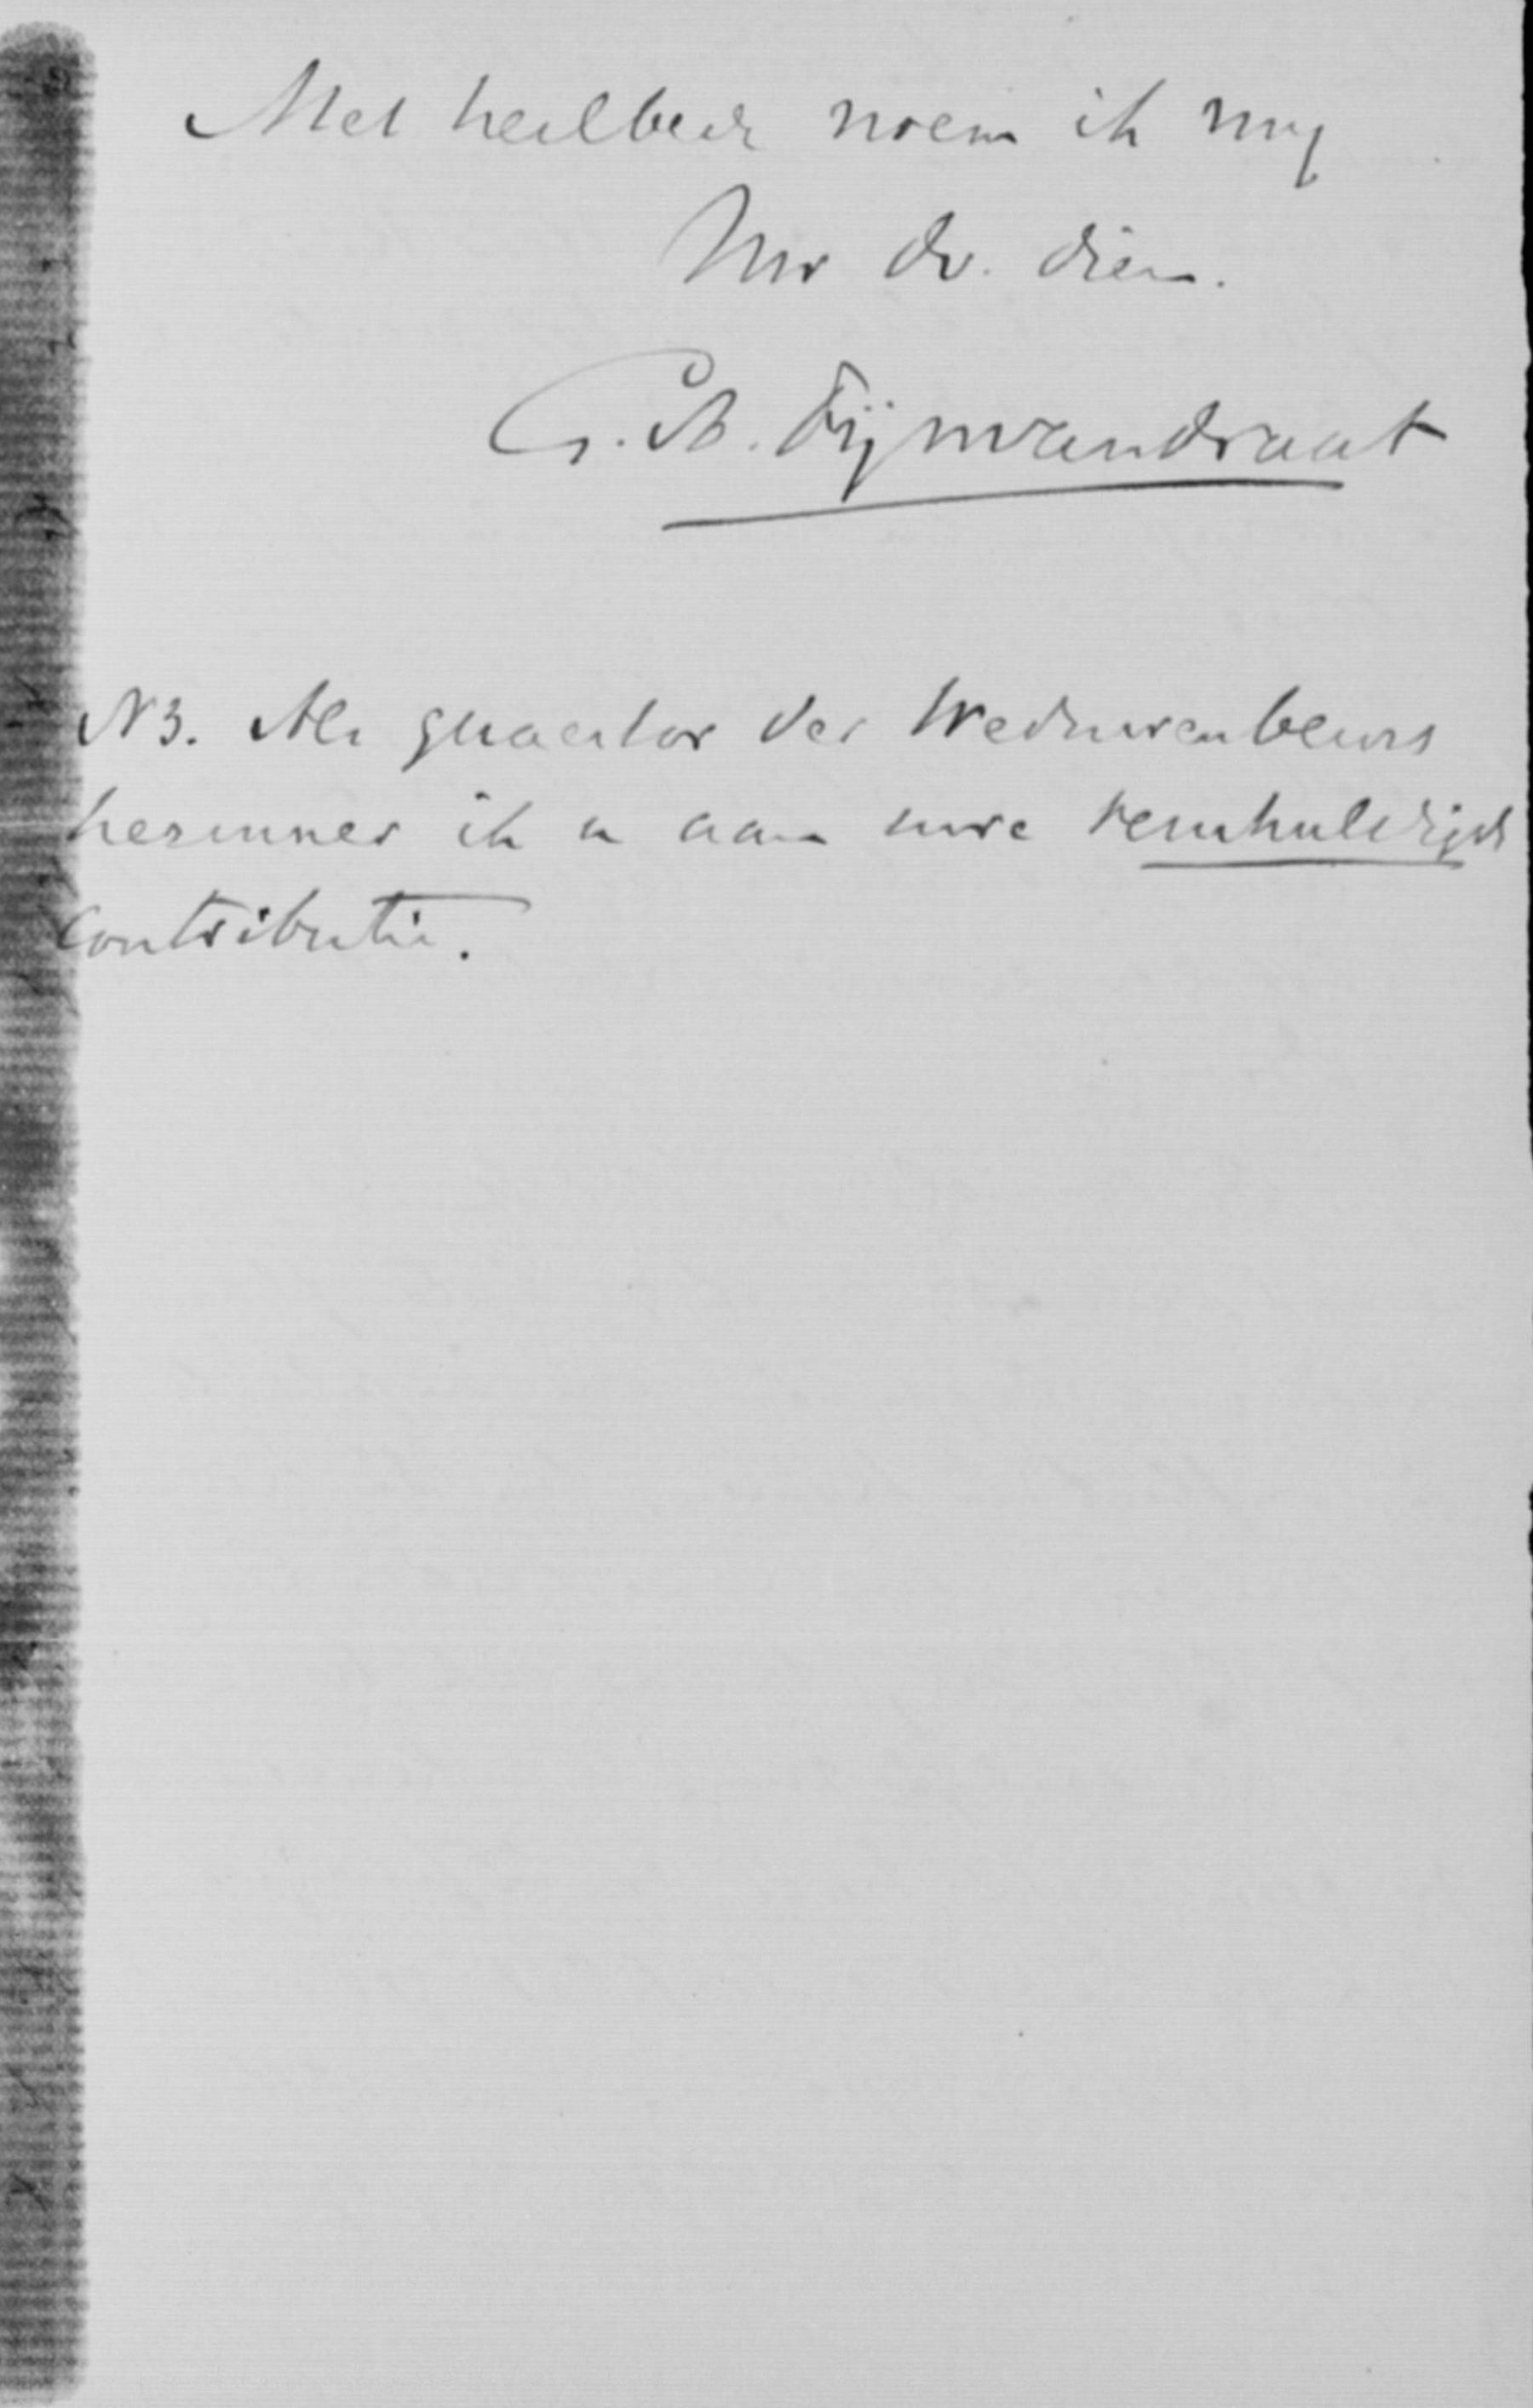 Met heilbede noem ik mij
Uw dv. dien.
C. A. Fijnvandraat
NB. Als quaestor der Weduwenbeurs
herinner ik u aan uwe
contributie.